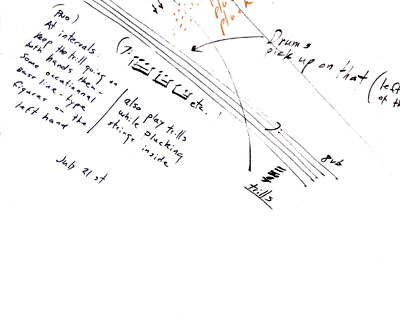 (PNO)
At intervals:
keep the trill going on
both hands then-
some occational
Bass line-type
figures on the
left hand
also play trills
while plucking
strings inside
July 21st
etc.
Drums
pick up on that (left
of th
8vb
trills